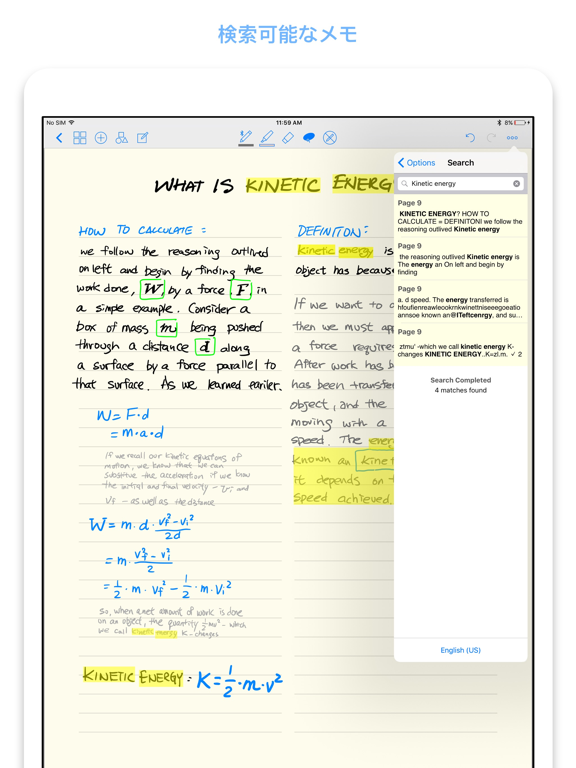 検索可能なメモ
No SIM 11:59 AM 8%
Options Search
Kinetic energy
Page 9
KINETIC ENERGY? HOW TO
CALCULATE = DEFINITONI we follow the
reasoning outlived Kinetic energy
Page 9
the reasoning outlived Kinetic energy is
The energy an On left and begin by
finding
Page 9
a. d speed. The energy transferred is
hfoufienreawleookrnkwinetniseeegoeatio
annsoe known an@ITeftcenrgy, and su...
Page 9
ztmu' -which we call kinetic energy K-
changes KINETIC ENERGY..K=zl.m. ✓ 2
Search Completed
4 matches found
English (US)
WHAT IS KINETIC ENERG
HOW TO CALCULATE =
we follow the reasoning outlined
on left and begin by finding the
work done, W, by a force F, in
a simple example. Consider a
box of mass m being pushed
through a distance d along
a surface by a force parallel to
that surface. As we learned earlier.
W = F·d
= m·a·d
If we recall our kinetic equations of
motion, we know that we can
substitute the acceleration if we know
the initial and final velocity – vi and
vf – as well as the distance
W = m·d· vf²–vi²/2d
= m· vf²–vi²/2
= 1/2·m·vf² – 1/2·m·vi²
So, when a net amount of work is done
on an object, the quantity 1/2mv² – which
we call kinetic energy K – changes
KINETIC ENERGY: K = 1/2·m·v²
DEFINITON:
kinetic energy is
object has because
If we want to
then we must
a force require
After work has b
has been transfer
object, and the
moving with a
speed. The energ
known an kinet
it depends on t
speed achieved.